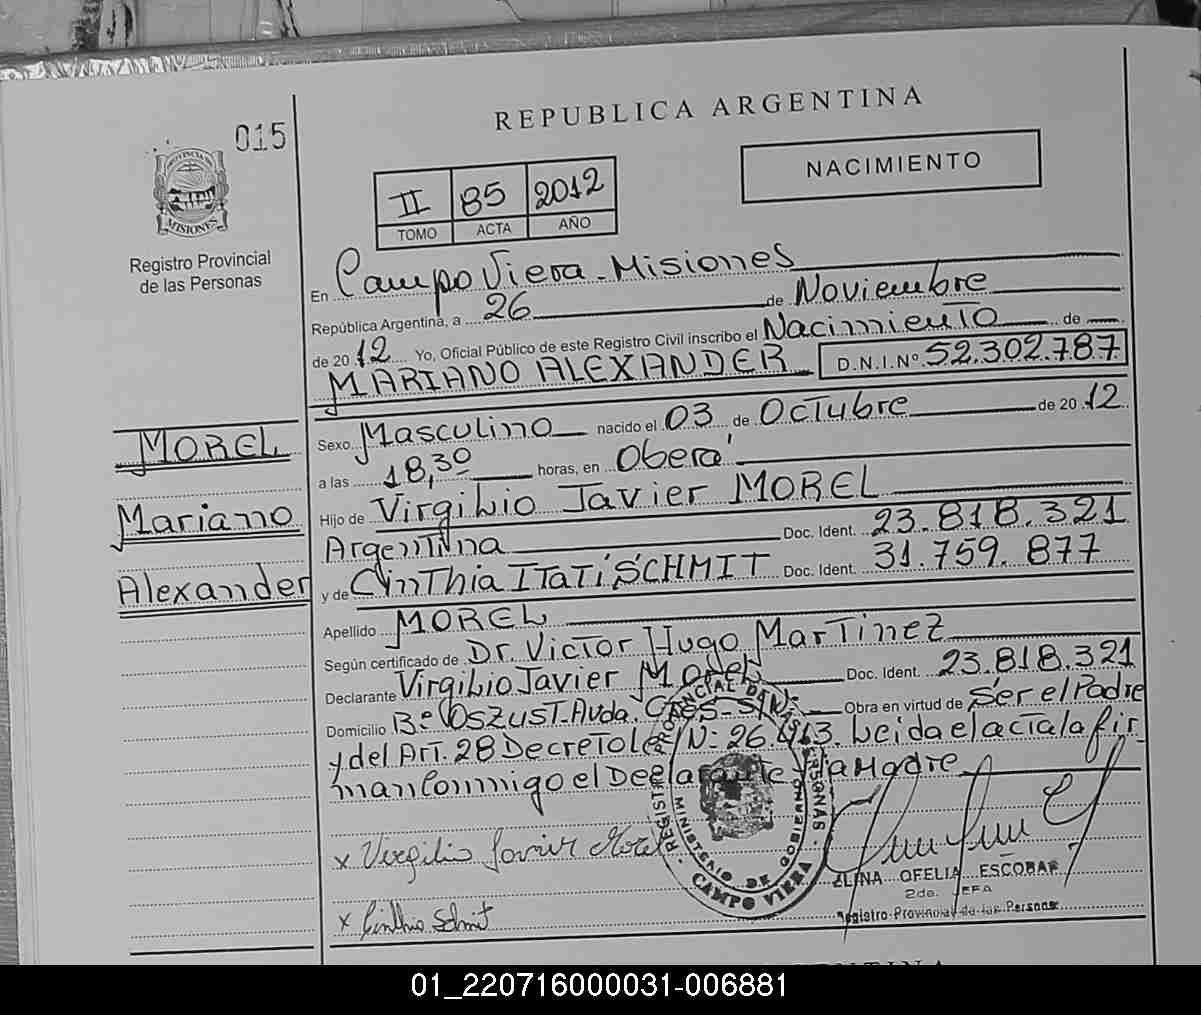 REPUBLICA ARGENTINA
015
NACIMIENTO
II 85 2012
TOMO ACTA AÑO
PROVINCIA DE
MISIONES
Registro Provincial
de las Personas
En Campo Viera - Misiones
República Argentina, a 26 de Noviembre
de 2012 Yo, Oficial Público de este Registro Civil inscribo el Nacimiento de
MARIANO ALEXANDER D.N.I.Nº 52.302.787
MOREL
Mariano
Alexander
Sexo Masculino nacido el 03 de Octubre de 2012
a las 18,30 horas, en Oberá
Hijo de Virgilio Javier MOREL
Argentina Doc. Ident. 23.818.321
y de Cinthia Itatí SCHMIT Doc. Ident. 31.759.877
Apellido MOREL
Según certificado de Dr. Victor Hugo Martinez
Declarante Virgilio Javier Morel Doc. Ident. 23.818.321
Domicilio Bº Oszust-Avda. S/N Obra en virtud de Ser el Padre
y del Art. 28 Decreto Ley Nº 26.413. Leida el acta la fir
man Conmigo el Declarante y la Madre
x Virgilio Javier Morel
x Cinthia Schmit
REGISTRO PROVINCIAL DE LAS PERSONAS
MINISTERIO DE GOBIERNO
CAMPO VIERA
ELINA OFELIA ESCOBAR
2da. JEFA
Registro Provincial de las Personas
01_220716000031-006881